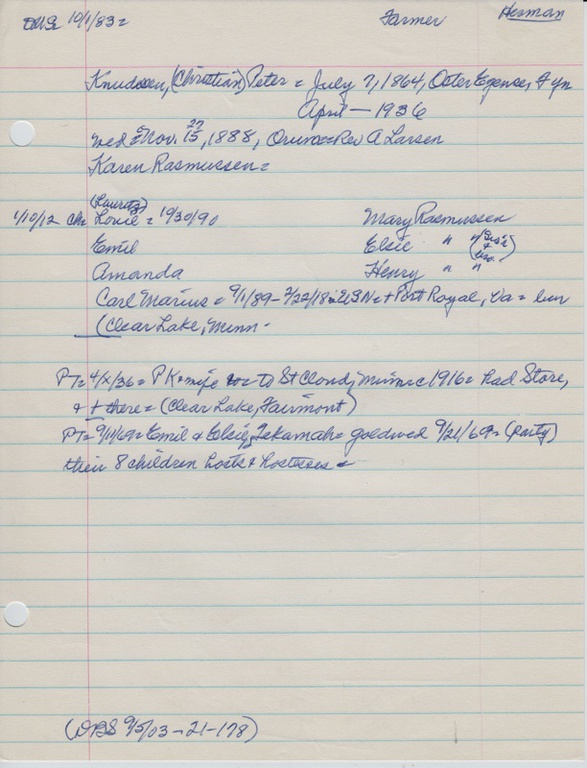 10/1/83 = Farmer Herman
Knudsen, (Christian) Peter = July 7, 1864, Oster Egense, Fyn
April — 1936
wed = Nov. 27 15, 1888, Orum = Rev A Larsen
Karen Rasmussen =
(Lauritz)
1/10/12 ch = Louie = 10/30/90 Mary Rasmussen
Emil Elsie " " (
Amanda Henry " "
Carl Marius = 9/1/89 - 2/22/18 = USN = + Port Royal, Va = bur
(Clear Lake, Minn -
PT = 4/x/36 = P K + wife to St Cloud, Minn = c 1916 = had Store,
+ + there = (Clear Lake, Fairmont)
PT = 9/11/69 = Emil + Elsie, Tekamah = goldwed 9/21/69 = (party)
their 8 children hosts + hostesses =
(DBS 9/5/03 - 21 - 178)